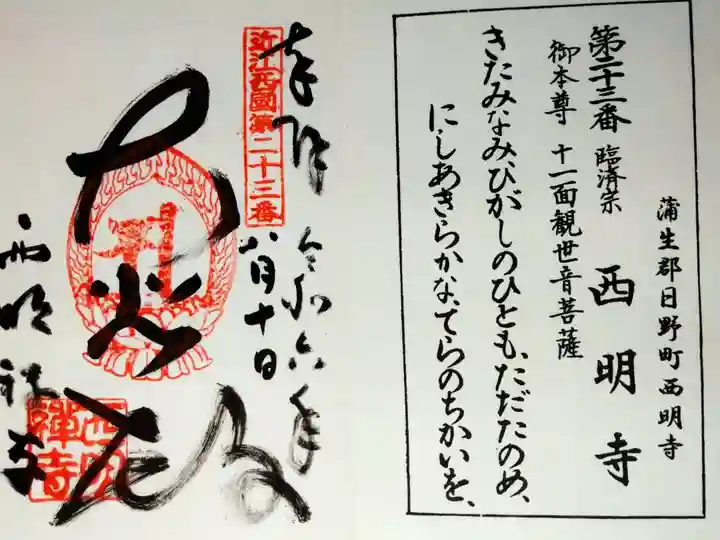 蒲生郡日野町西明寺
第二十三番 臨済宗 西明寺
御本尊 十一面観世音菩薩
きたみなみ、ひがしのひとも、ただたのめ、
にしあきらかな、てらのちかいを、
奉拝 令和六年
八月十日
近江西國第二十三番
大悲殿
西明禅寺
西明禪寺